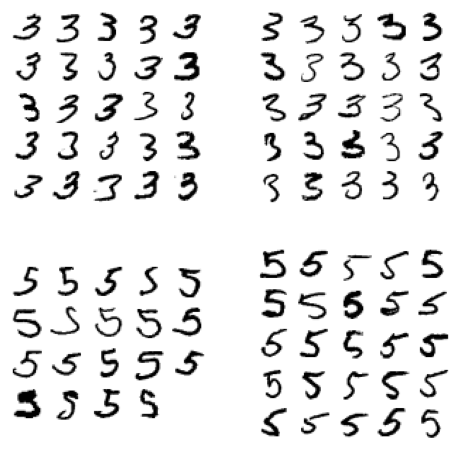 3 3 3 3 3
3 3 3 3 3
3 3 3 3 3
3 3 3 3 3
3 3 3 3 3
3 3 3 3 3
3 3 3 3 3
3 3 3 3 3
3 3 3 3 3
3 3 3 3 3
5 5 5 5 5
5 5 5 5 5
5 5 5 5 5
5 5 5 5
5 5 5 5 5
5 5 5 5 5
5 5 5 5 5
5 5 5 5 5
5 5 5 5 5